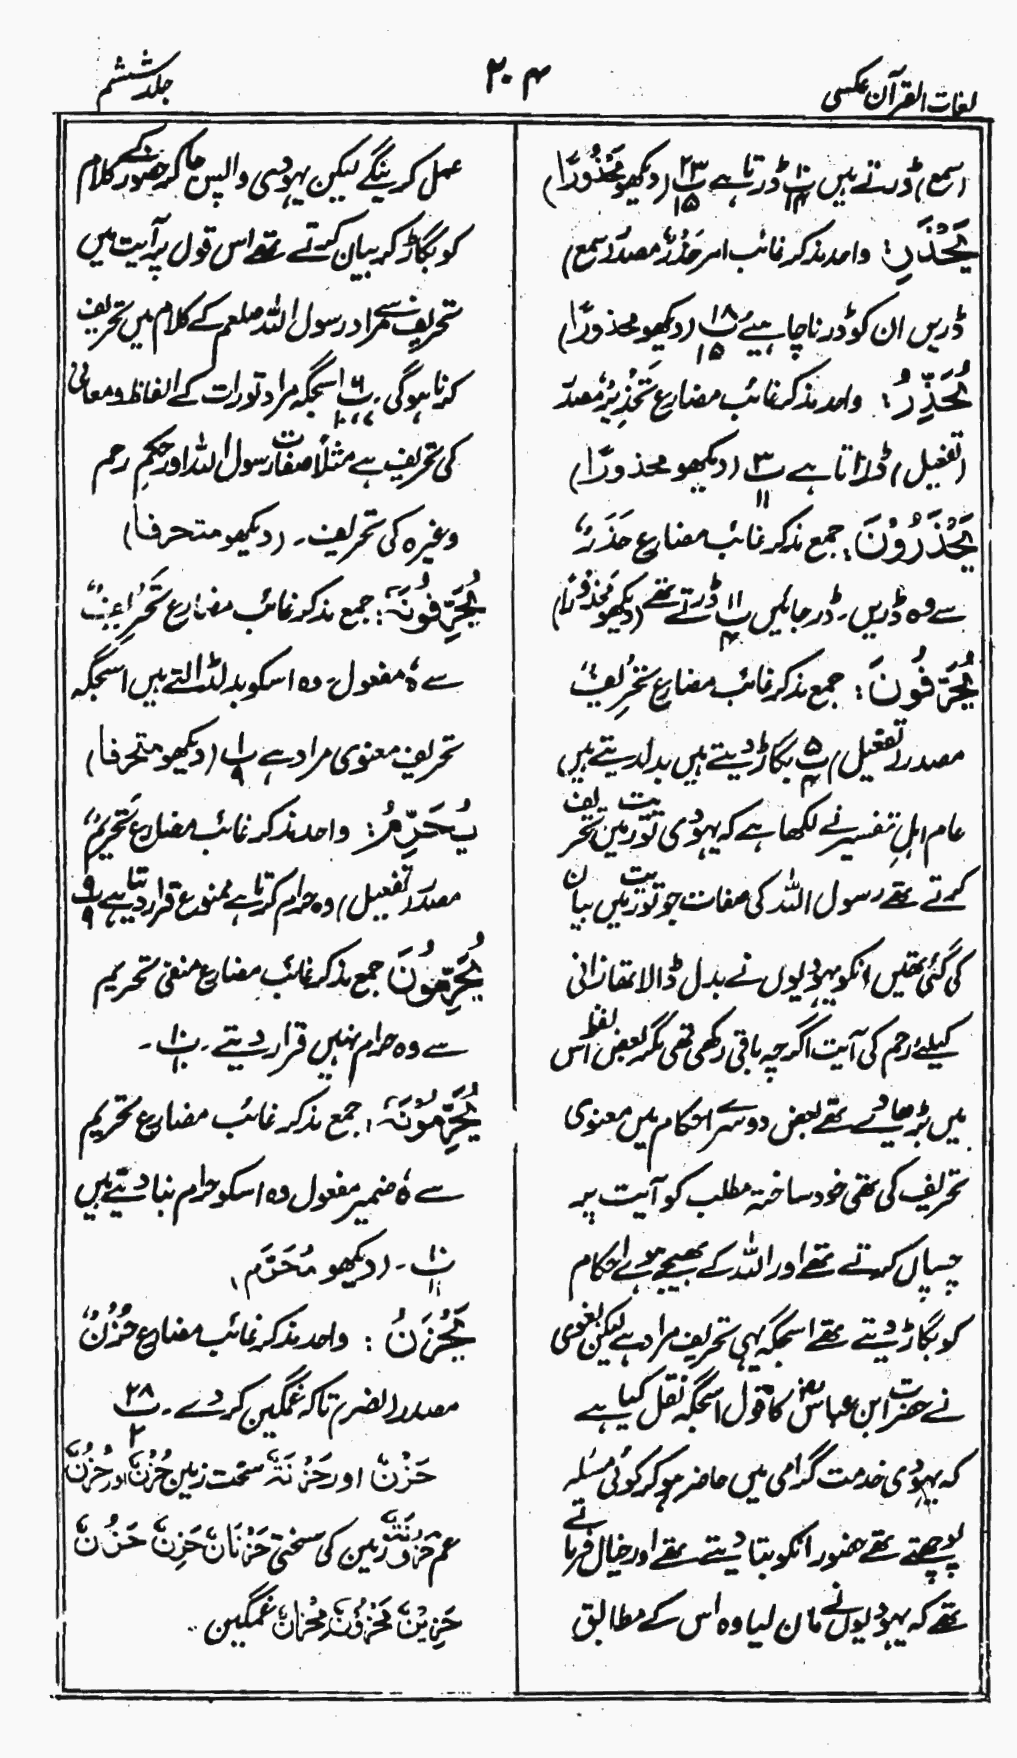 لغات القرآن عکسی
۲۰۴
جلد ششم
(سمع) ڈرتے ہیں پ۱۰/۱۴ ڈرتا ہے پ۲۳/۱۵ (دیکھو مَحْذُورًا)
یَحْذَرِ: واحد مذکر غائب امر حَذَرٌ مصدر سمع)
ڈریں ان کو ڈرنا چاہیئے پ۱۸/۱۵ (دیکھو محذورًا)
یُحَذِّرُ: واحد مذکر غائب مضارع تَحْذِیْرٌ مصدر
(تفعیل) ڈراتا ہے پ۳/۱۱ (دیکھو محذورًا)
یَحْذَرُوْنَ: جمع مذکر غائب مضارع حَذَرٌ
سے وہ ڈریں۔ ڈر جائیں پ۱۱/۴ ڈرتے تھے (دیکھو محذورًا)
یُحَرِّفُونَ: جمع مذکر غائب مضارع تَحْرِیْفٌ
مصدر (تفعیل) پ۵/۴ بگاڑ دیتے ہیں بدل دیتے ہیں
عام اہلِ تفسیر نے لکھا ہے کہ یہودی توریت میں تحریف
کرتے تھے رسول اللہ کی صفات جو توریت میں بیان
کی گئی تھیں انکو یہودیوں نے بدل ڈالا تھا زانی
کیلئے رجم کی آیت اگرچہ باقی رکھی تھی مگر بعض لفظ اس
میں بڑھا دئے تھے بعض دوسرے احکام میں معنوی
تحریف کی تھی خود ساختہ مطلب کو آیت پر
چسپاں کرتے تھے اور اللہ کے بھیجے ہوئے احکام
کو بگاڑ دیتے تھے اسجگہ یہی تحریف مراد ہے لیکن بغوی
نے حضرت ابن عباسؓ کا قول اسجگہ نقل کیا ہے
کہ یہودی خدمت گرامی میں حاضر ہو کر کوئی مسئلہ
پوچھتے تھے حضور انکو بتا دیتے تھے اور خیال فرماتے
تھے کہ یہودیوں نے مان لیا وہ اس کے مطابق
عمل کرینگے لیکن یہودی واپس جا کر حضور کے کلام
کو بگاڑ کر بیان کرتے تھے اس قول پر آیت میں
تحریف سے مراد رسول اللہ صلعم کے کلام میں تحریف
کرنا ہوگی۔ پ۶ اسجگہ مراد تورات کے الفاظ و معانی
کی تحریف ہے مثلًا صفات رسول اللہ اور حکمِ رجم
وغیرہ کی تحریف۔ (دیکھو متحرفا)
یُحَرِّفُوْنَہٗ: جمع مذکر غائب مضارع تَحْرِیْفٌ
سے ہٗ مفعول۔ وہ اسکو بدل ڈالتے ہیں اسجگہ
تحریفِ معنوی مراد ہے پ۱/۹ (دیکھو متحرفا)
یُحَرِّمُ: واحد مذکر غائب مضارع تَحْرِیْمٌ
مصدر (تفعیل) وہ حرام کرتا ہے ممنوع قرار دیتا ہے پ۹/۹
یُحَرِّمُوْنَ جمع مذکر غائب مضارع منفی تحریم
سے وہ حرام نہیں قرار دیتے۔ پ۱۰/۱۰۔
یُحَرِّمُوْنَہٗ: جمع مذکر غائب مضارع تحریم
سے ہٗ ضمیر مفعول وہ اسکو حرام بنا دیتے ہیں
پ۱۰/۱۱۔ (دیکھو مُحَرَّم)
یَحْزُنَ: واحد مذکر غائب مضارع حُزْنٌ
مصدر (نصر) تاکہ غمگین کر دے۔ پ۲۸/۲
حَزْنٌ اور حَزْنَۃٌ سخت زمین حُزْنٌ اور حُزُنٌ
غم زمین کی سختی حَزْنَانٌ حَزِنٌ حَزُنٌ
حَزِیْنٌ مَحْزُوْنٌ مِحْزَانٌ غمگین۔